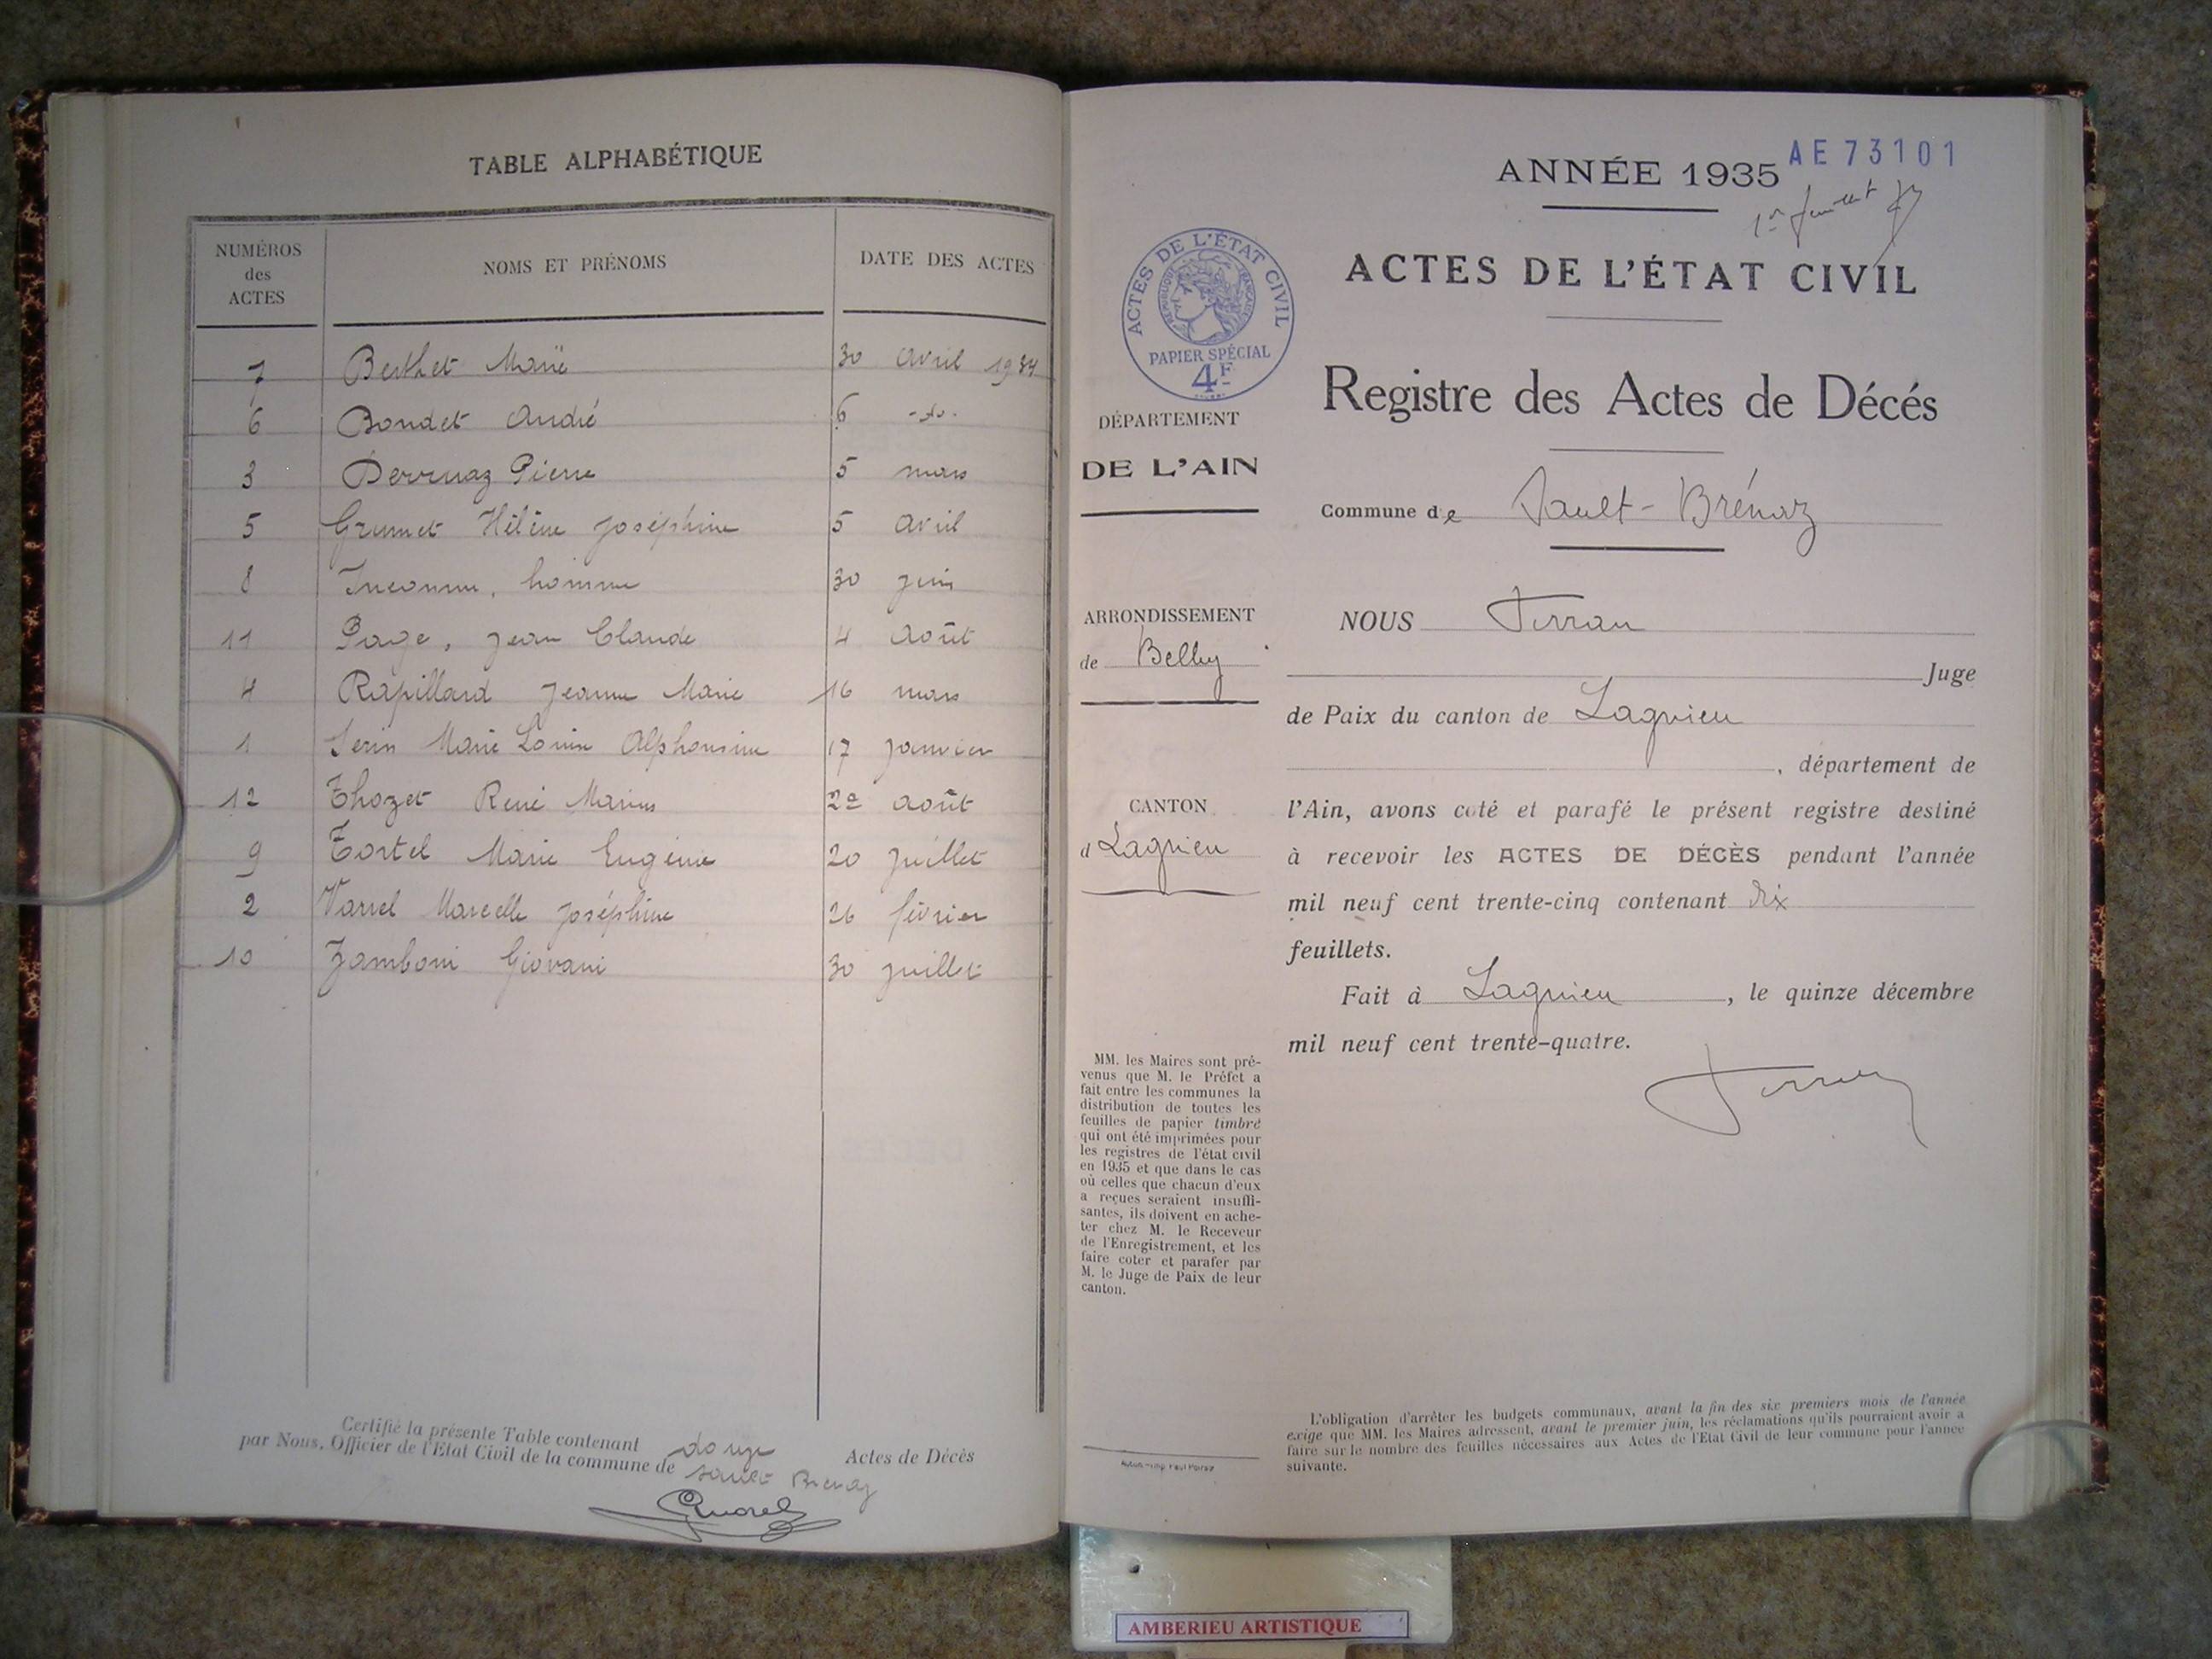 TABLE ALPHABÉTIQUE
NUMÉROS des ACTES NOMS ET PRÉNOMS DATE DES ACTES
7 Berthet Marie 30 avril 1934
6 Bondet André 6 -do-
3 Dervuaz Pierre 5 mars
5 Grumet Hélène Joséphine 5 avril
8 Inconnu, homme 30 juin
11 Page, Jean Claude 4 août
4 Rapillard Jeanne Marie 16 mars
1 Serin Marie Louise Alphonsine 17 janvier
12 Thozet René Marius août
9 Tortel Marie Eugénie 20 juillet
2 Varrel Marcelle Joséphine 26 février
10 Zamboni Giovani 30 juillet
Certifié la présente Table contenant douze Actes de Décès
par Nous, Officier de l'Etat Civil de la commune de Sault Brenaz
ANNÉE 1935
AE73101
1er feuillet
ACTES DE L'ÉTAT CIVIL
RÉPUBLIQUE FRANÇAISE
PAPIER SPÉCIAL
4F
ACTES DE L'ÉTAT CIVIL
Registre des Actes de Décés
DÉPARTEMENT
DE L'AIN
Commune de Sault-Brénaz
ARRONDISSEMENT
de Belley
CANTON
d Lagnieu
NOUS Ferran
Juge
de Paix du canton de Lagnieu
, département de
l'Ain, avons coté et parafé le présent registre destiné
à recevoir les ACTES DE DÉCÈS pendant l'année
mil neuf cent trente-cinq contenant dix
feuillets.
Fait à Lagnieu, le quinze décembre
mil neuf cent trente-quatre.
MM. les Maires sont pré-
venus que M. le Préfet a
fait entre les communes la
distribution de toutes les
feuilles de papier timbré
qui ont été imprimées pour
les registres de l'état civil
en 1935 et que dans le cas
où celles que chacun d'eux
a reçues seraient insuffi-
santes, ils doivent en ache-
ter chez M. le Receveur
de l'Enregistrement, et les
faire coter et parafer par
M. le Juge de Paix de leur
canton.
L'obligation d'arrêter les budgets communaux, avant la fin des six premiers mois de l'année
exige que MM. les Maires adressent, avant le premier juin, les réclamations qu'ils pourraient avoir a
faire sur le nombre des feuilles nécessaires aux Actes de l'Etat Civil de leur commune pour l'année
suivante.
AMBERIEU ARTISTIQUE